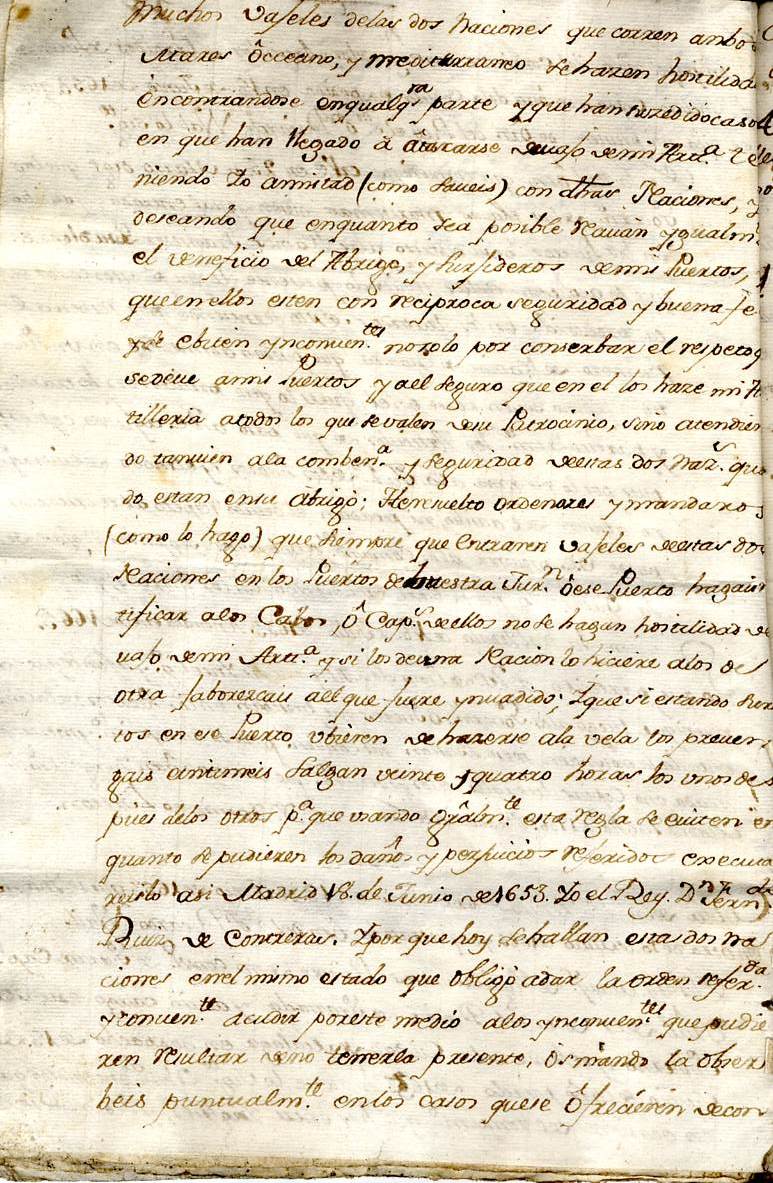 Muchos vaseles delas dos Naciones que corren ambos
Mares Occeano, y mediterraneo se hazen hostilida
encontrandose enqualqra parte y que han sucedido casos
en que han llegado a atacarse devajo de mi Arta. i te
niendo Io amistad (como saveis) con dhas Naciones, y
deseando que enquanto sea posible Reciuan ygualmte
el veneficio del Abrigo, y surxideros de mis Puertos,
que en ellos esten con reciproca seguridad y buena fe
y se ebiten ynconuentes. no solo por conserbar el respeto q
se deve a mis Puertos y a el seguro que en el los haze mi Ar
tilleria a todos los que se valen de su Patrocinio, sino atendien
do tanvien ala combena. y seguridad de estas dos Nazs. quan
do estan en su Abrigo; He resuelto ordenaros y mandaros
(como lo hago) que siempre que entraren vaseles de estas dos
Naciones en los Puertos de buestra Jurn. ô ese Puerto hagais no
tificar a los Cabos, ô Caps. de ellos no se hagan hostilidad de
vajo de mi Arta. y si los de una Nacion lo hiciere a los de
otra faborezcais a el que fuere ynuadido; Y que si estando sur
tos en ese Puerto vbieren de hazerse ala vela los preuen
gais entimeis salgan veinte y quatro horas los unos des
pues de los otros pa. que vsando gralmte. esta regla se euiten en
quanto se pudieren los daños y perjuicios referidos executa
reislo asi Madrid 18. de Junio de 1653. Yo el Rey. Dn Ferndo
Ruiz de Contreras. Y por que hoy se hallan estas dos Na
ciones en el mimo estado que obligò a dar la orden referda.
y conuente. acudir por este medio a los ynconuentes. que pudie
ren resultar de no tenerla presente, os mando la obser
beis puntualmte. en los casos que se ofrecieren de con